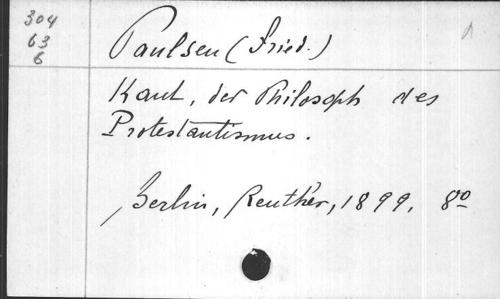 304
63
6
Paulsen (Fried.)
Kant, der Philosoph des
Protestantismus.
Berlin, Reuther, 1899, 8º